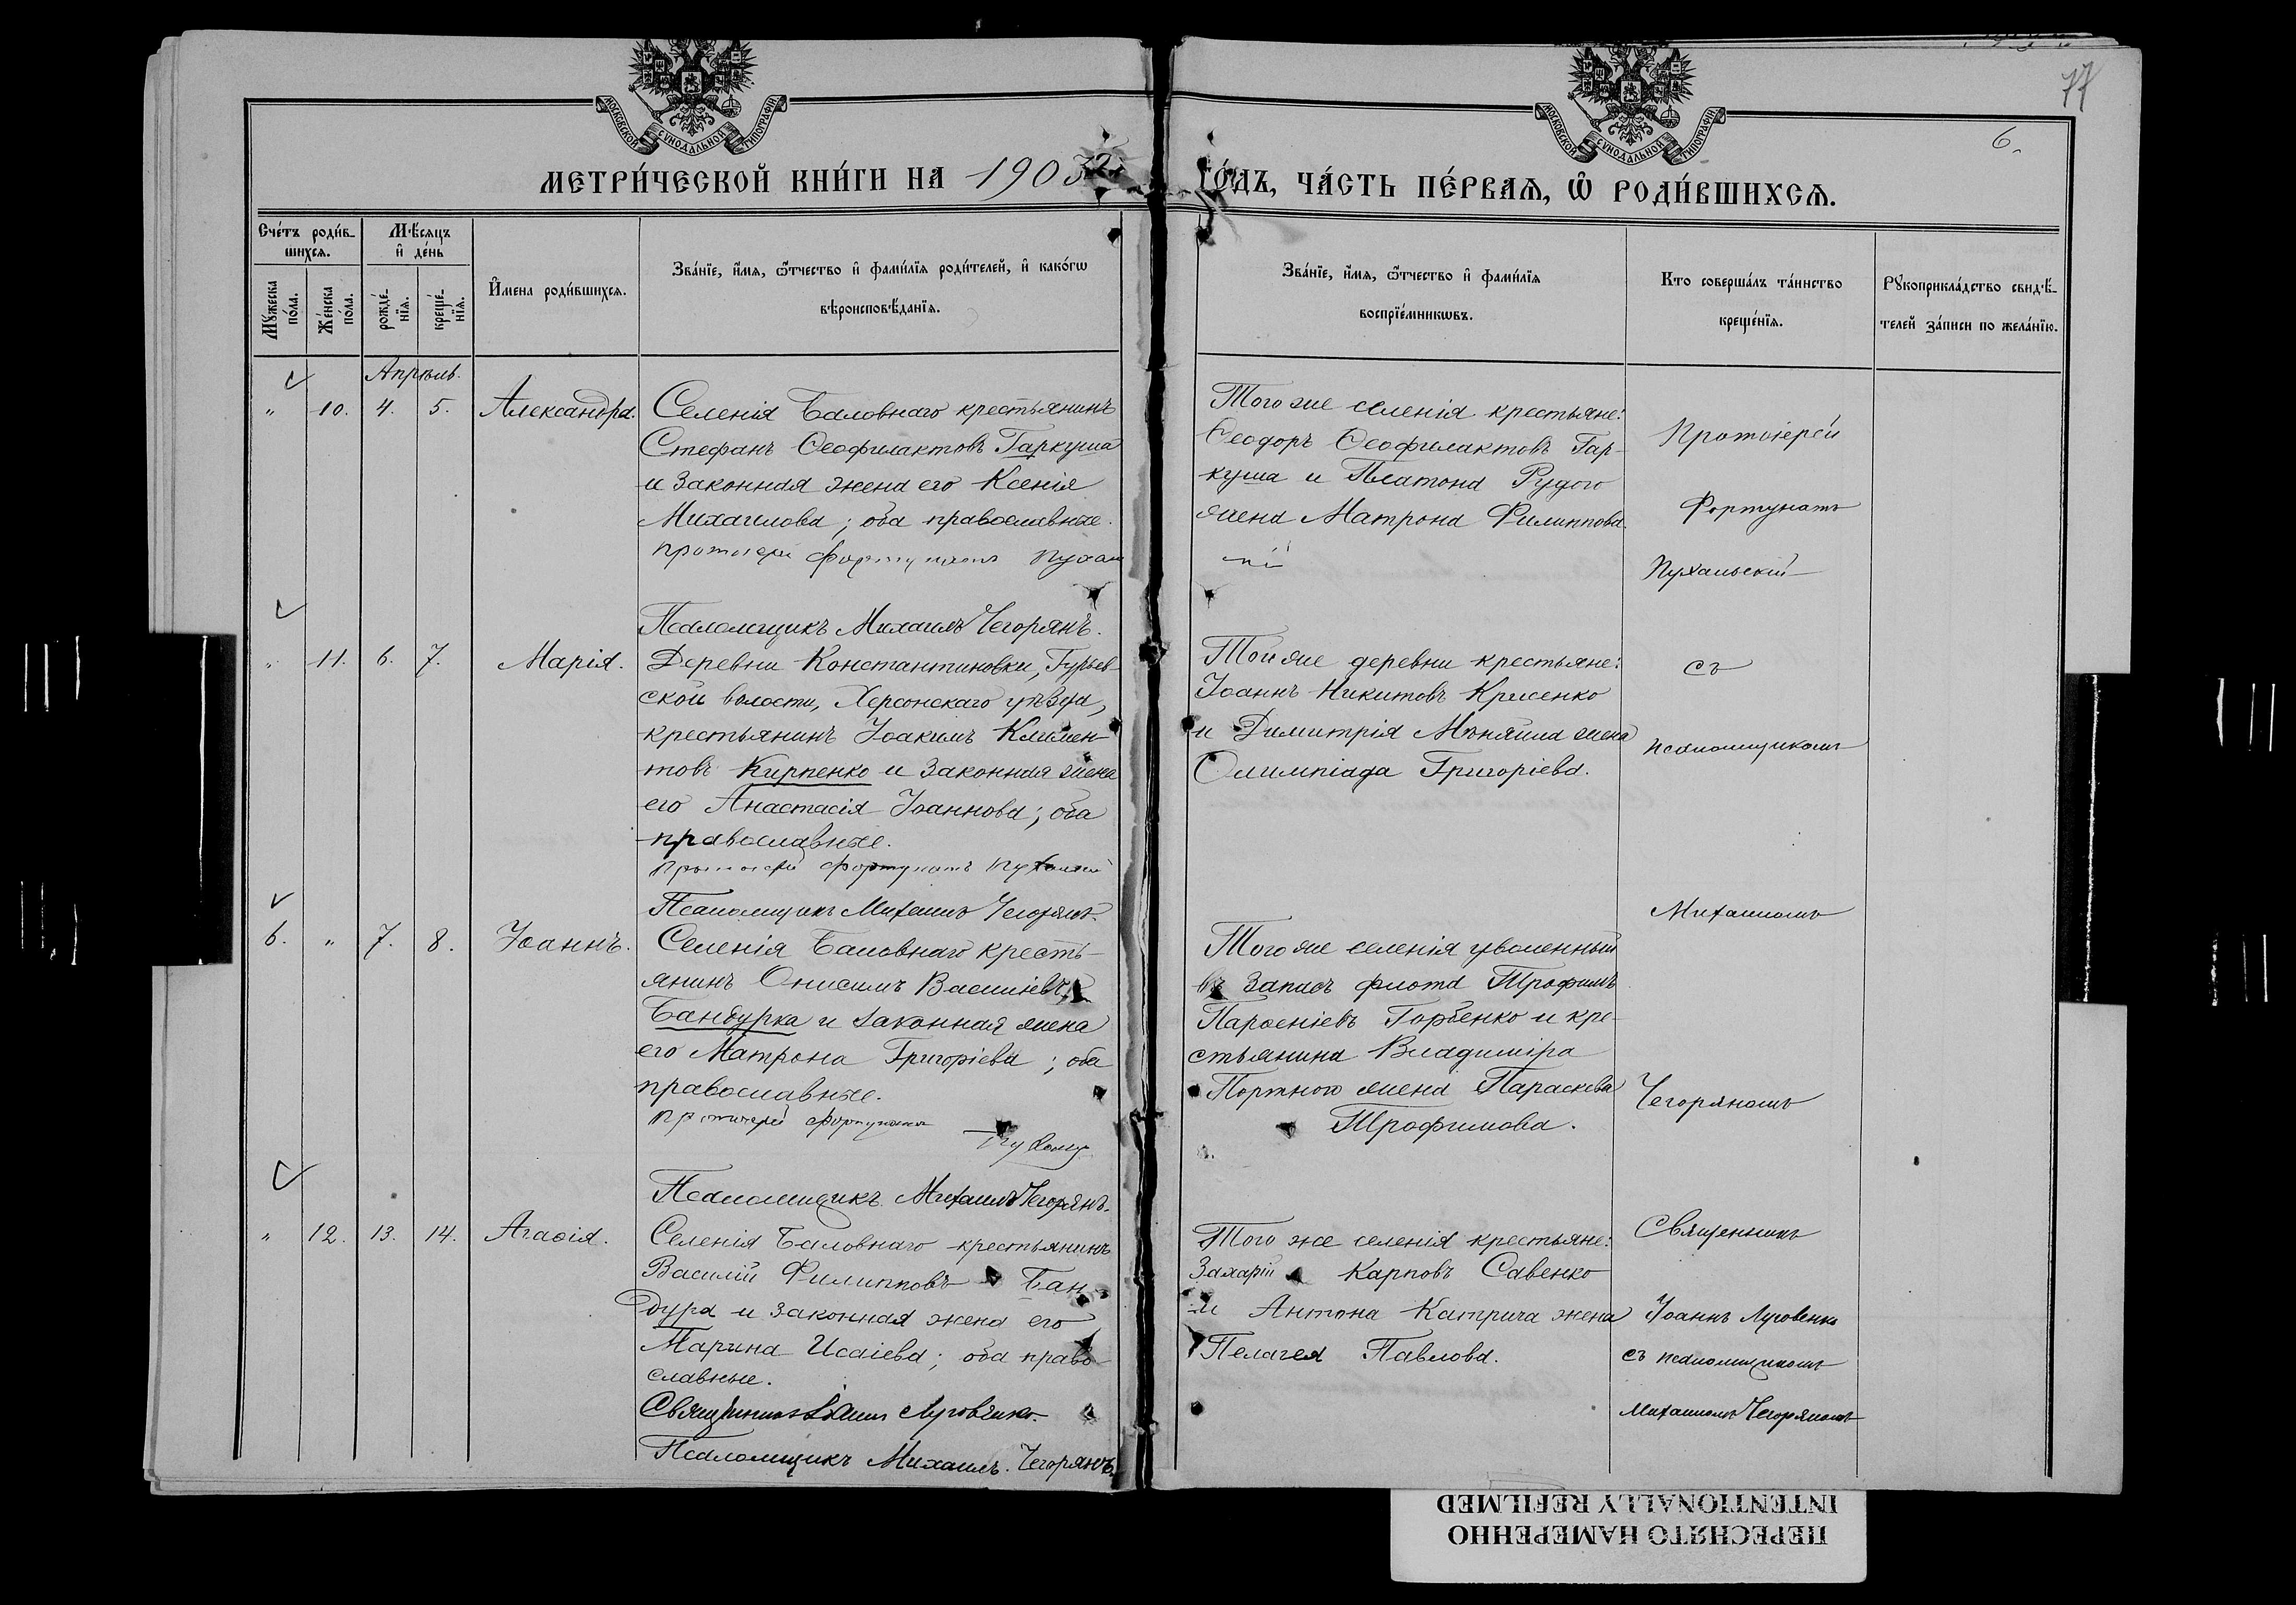 МОСКОВСКОЙ СѴНОДАЛЬНОЙ ТИПОГРАФІИ
МОСКОВСКОЙ СѴНОДАЛЬНОЙ ТИПОГРАФІИ
77
6.
МЕТРИ́ЧЕСКОЙ КНИ́ГИ НА 1903 ГО́ДЪ, ЧА́СТЬ ПЕ́РВАѦ, Ѡ҆ РОДИ́ВШИХСѦ.
Сче́тъ роди́в-
шихсѧ.
Мѣ́сѧцъ
и҆ де́нь
Мꙋ́жеска
по́ла.
Же́нска
по́ла.
рожде́-
нїѧ.
креще́-
нїѧ.
И҆мена роди́вшихсѧ.
Зва́нїе, и҆́мѧ, ѻ҆́тчество и҆ фами́лїѧ роди́телей, и҆ како́гѡ
вѣроисповѣ́данїѧ.
Зва́нїе, и҆́мѧ, ѻ҆́тчество и҆ фами́лїѧ
воспрїе́мникѡвъ.
Кто соверша́лъ та́инство
креще́нїѧ.
Рꙋкоприкла́дство свидѣ́-
телей за́писи по жела́нїю.
Апрѣль.
" 10. 4. 5. Александра.
Селенія Баловнаго крестьянинъ
Стефанъ Ѳеофилактовъ Гаркуша
и законная жена его Ксенія
Михаилова; оба православные.
Протоіерей Фортунатъ Пухаль
Того же селенія крестьяне:
Ѳеодоръ Ѳеофилактовъ Гар-
куша и Платона Рудого
жена Матрона Филиппова.
Протоіерей
Фортунатъ
Пухальскій
Псаломщикъ Михаилъ Чегорянъ.
" 11. 6. 7. Марія.
Деревни Константиновки, Гурьев-
ской волости, Херсонскаго уѣзда,
крестьянинъ Іоакимъ Климен-
товъ Кирпенко и законная жена
его Анастасія Іоаннова; оба
православные.
Протоіерей Фортунатъ
Псаломщикъ Михаилъ Чегорянъ.
Той же деревни крестьяне:
Іоаннъ Никитовъ Крисенко
и Димитрія Мѣняйла жена
Олимпіада Григоріева.
съ
псаломщикомъ
Михаиломъ
6. " 7. 8. Іоаннъ.
Селенія Баловнаго кресть-
янинъ Онисимъ Васильевъ
Бандурка и законная жена
его Матрона Григоріева; оба
православные.
Протоіерей Фортунатъ
Псаломщикъ Михаилъ Чегорянъ.
Того же селенія уволенный
въ запасъ флота Трофимъ
Парѳеніевъ Горбенко и кре-
стьянина Владиміра
Портного жена Параскева
Трофимова.
Чегоряномъ
" 12. 13. 14. Агаѳія.
Селенія Баловнаго крестьянинъ
Василій Филипповъ Бан
дура и законная жена его
Марина Исаіева; оба право-
славные.
Священникъ Іоаннъ Луговенко.
Псаломщикъ Михаилъ Чегорянъ.
Того же селенія крестьяне:
Захарій Карповъ Савенко
и Антона Катрича жена
Пелагея Павлова.
Священникъ
Іоаннъ Луговенко
съ псаломщикомъ
Михаиломъ Чегоряномъ
ПЕРЕСНЯТО НАМЕРЕННО
INTENTIONALLY REFILMED